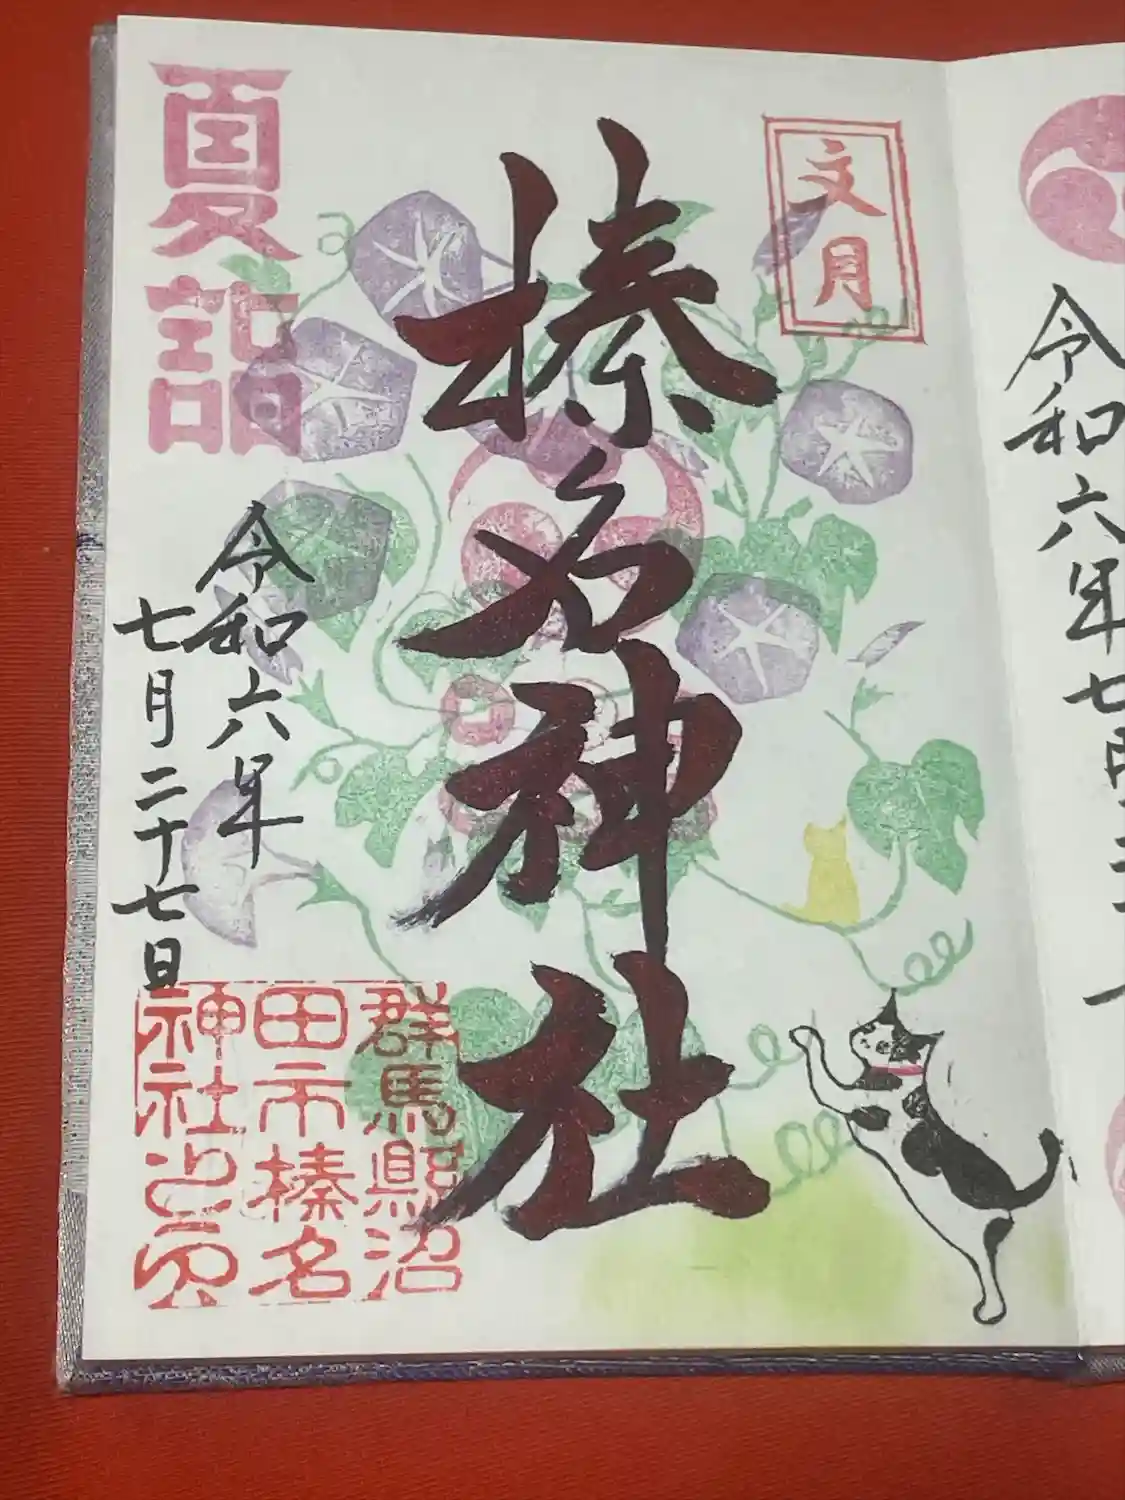 令和六年七月
文月
榛名神社
夏詣
令和六年
七月二十七日
群馬縣沼
田市榛名
神社之印